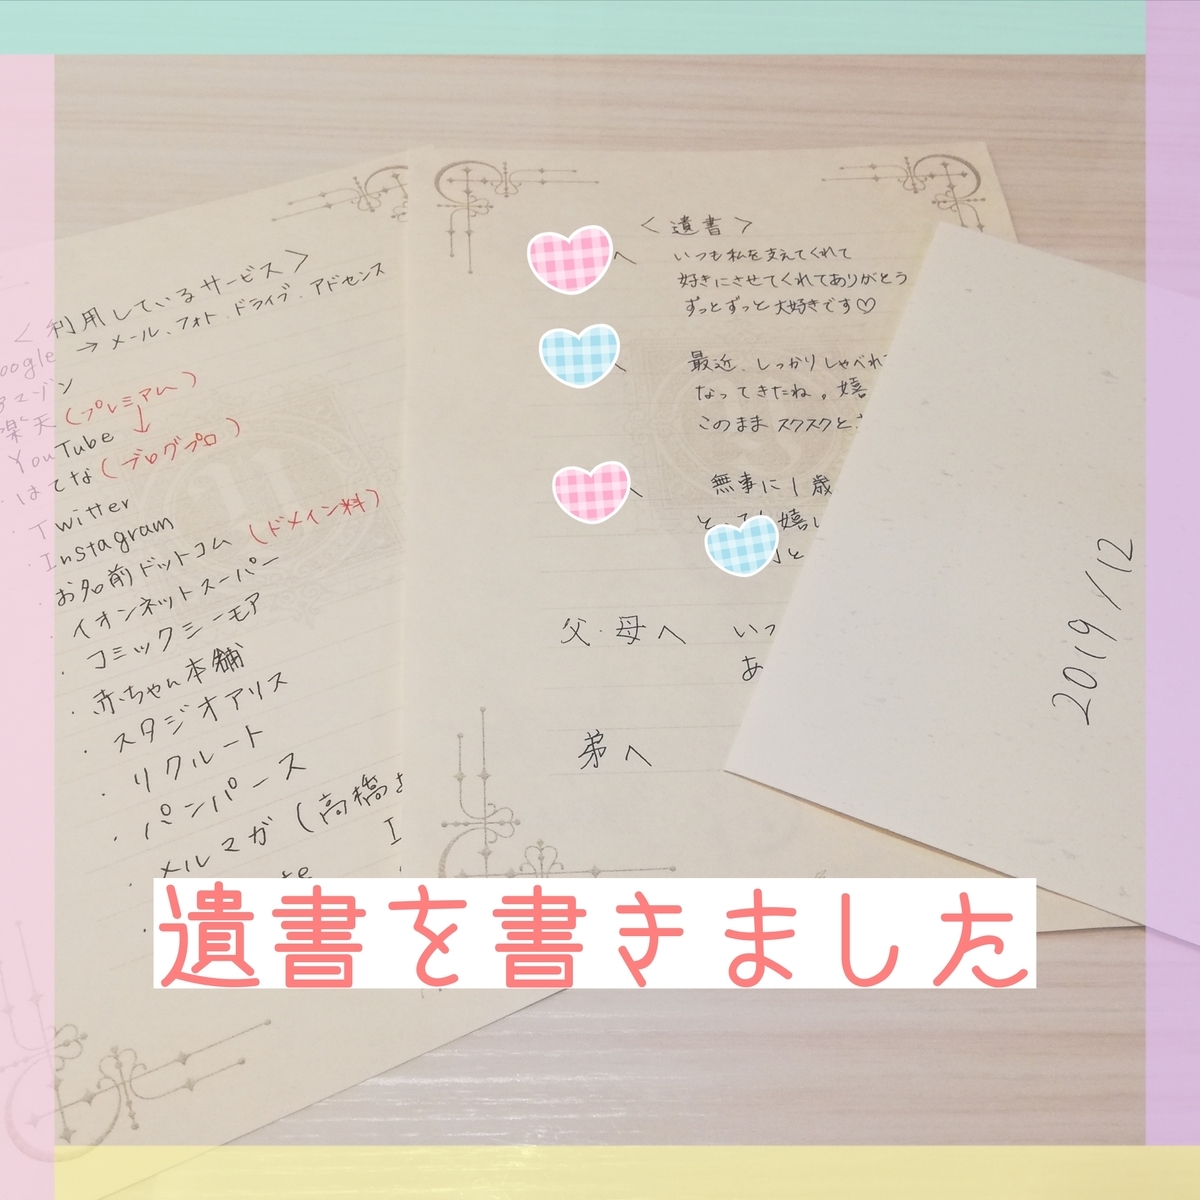 <利用しているサービス>
oogle → メール、フォト、ドライブ、アドセンス
アマゾン
楽天(プレミアム)
YouTube ↓
・はてな(ブログプロ)
・Twitter
・Instagram
・お名前ドットコム(ドメイン料)
・イオンネットスーパー
・コミックシーモア
・赤ちゃん本舗
・スタジオアリス
・リクルート
・パンパース
・メルマガ(高橋さ
<遺書>
へ いつも私を支えてくれて
好きにさせてくれてありがとう
ずっとずっと大好きです♡
へ 最近、しっかりしゃべれ
なってきたね。嬉
このままスクスクと
へ 無事に1歳
嬉し
と
父・母へ いつ
あ
弟へ
2019/12
遺書を書きました